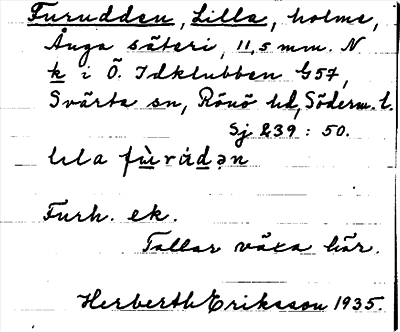 Furudden, Lilla, holme,
Ånga säteri, 11,5 mm. N
k i Ö. Idklubben G57,
Svärta sn, Rönö hd, Söderm. l.
Sj 239 : 50.
lila fùrúdən
Furh. ek.
Tallar växa här.
Herberth Eriksson 1935.